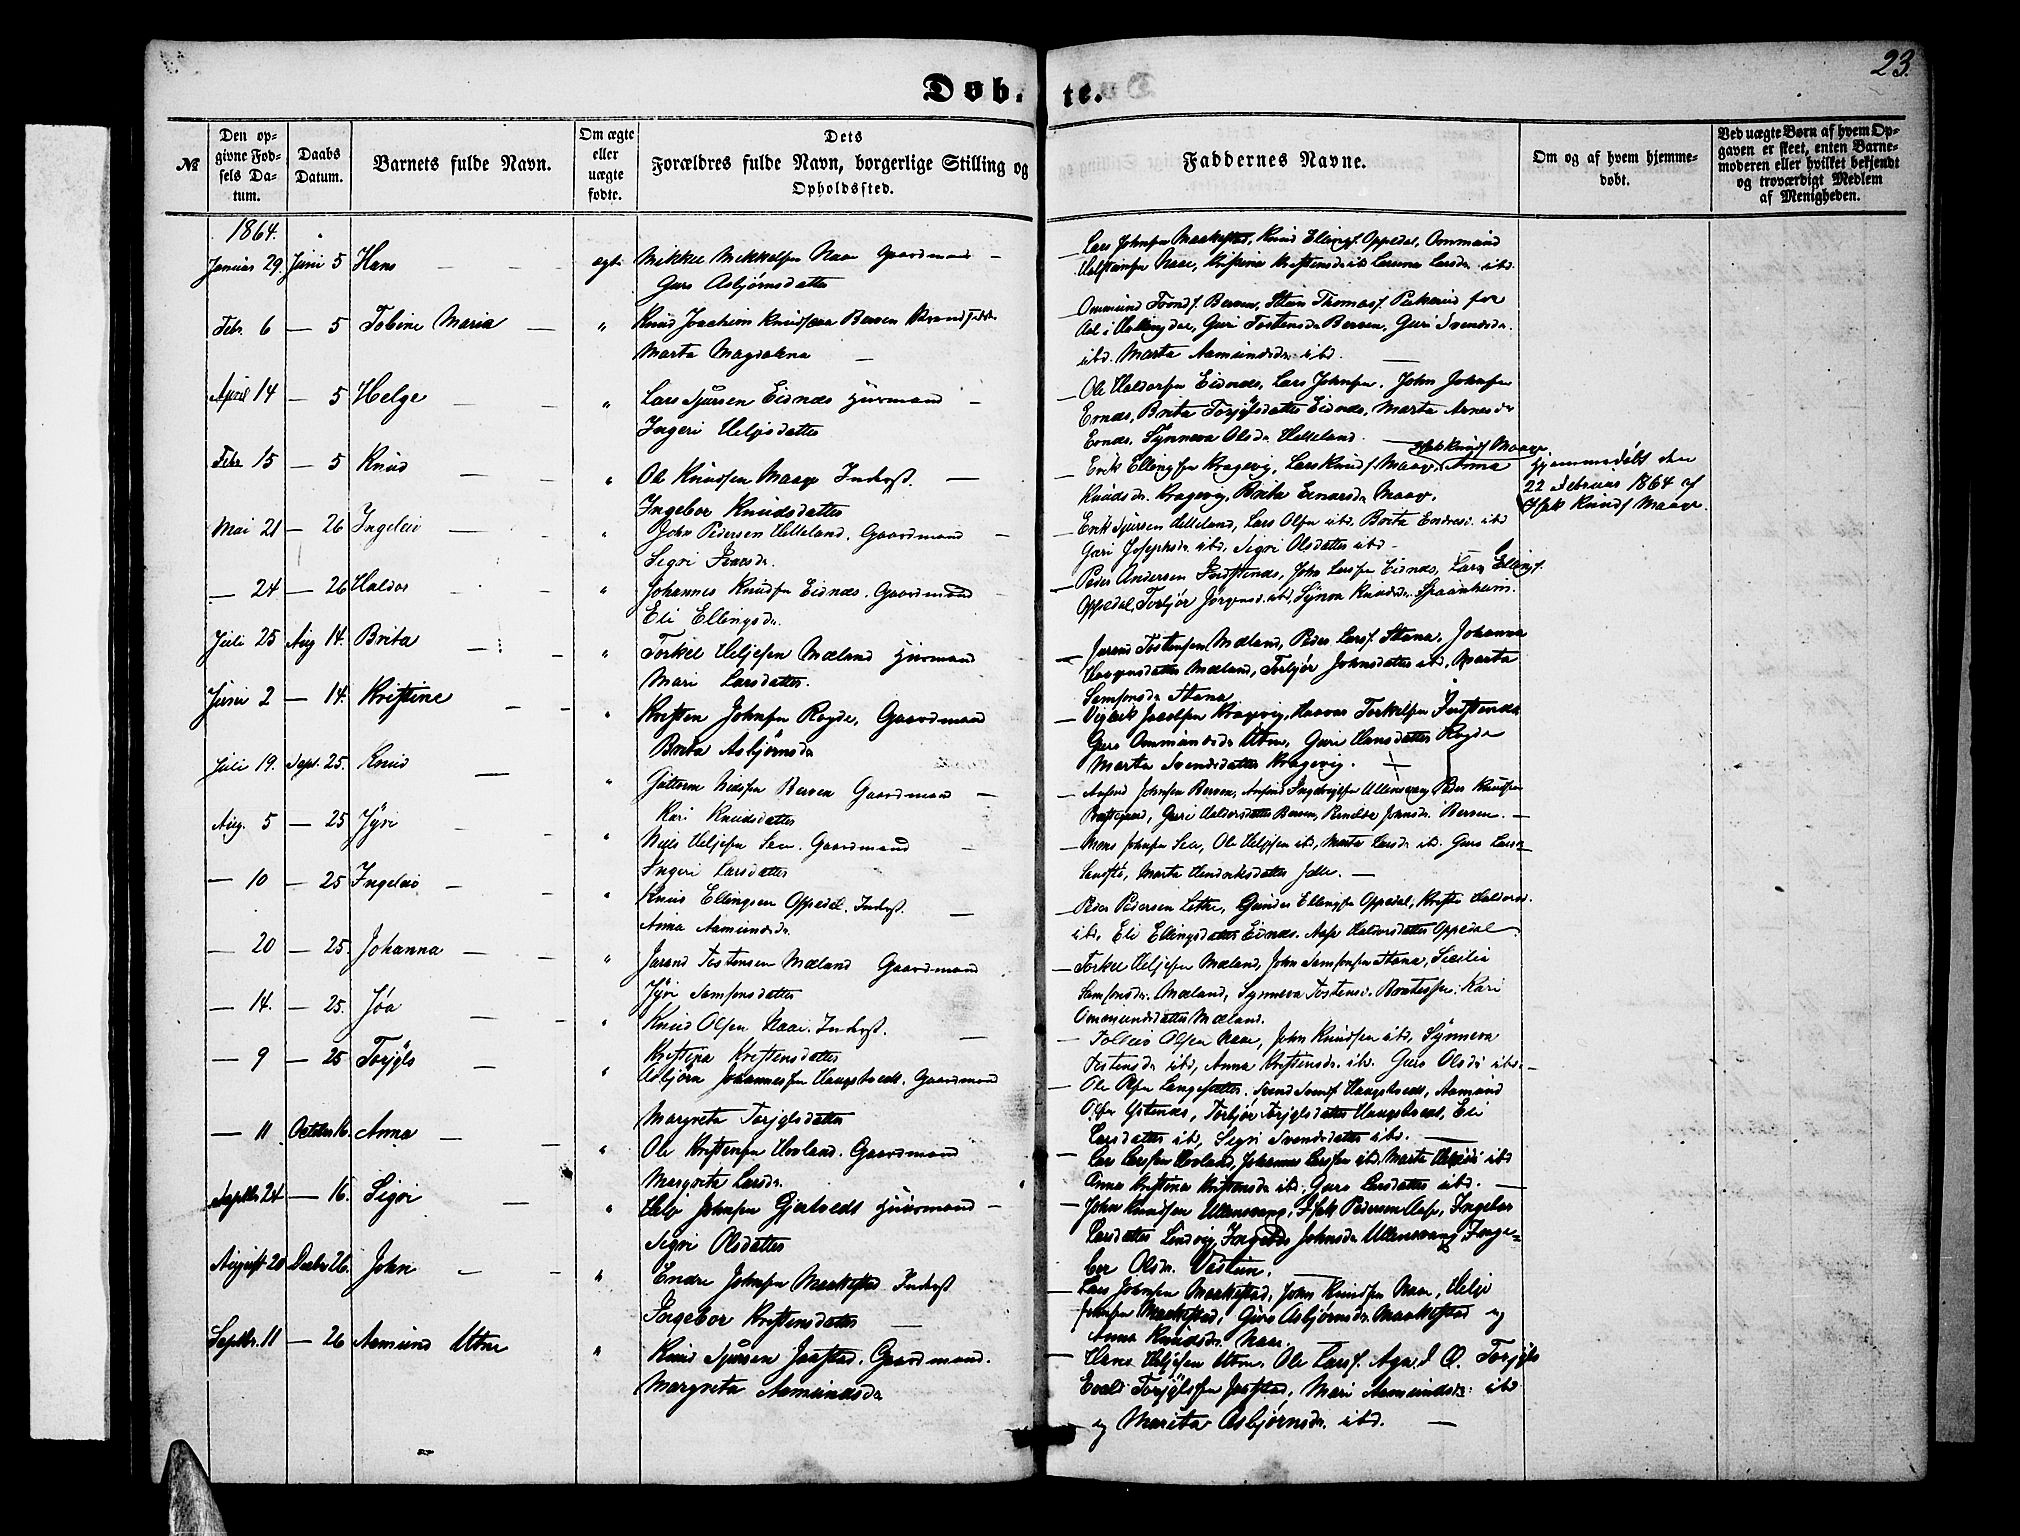 23.
Døb- te.
№
Den opgivne Fødsels Datum.
Daabs Datum.
Barnets fulde Navn.
Om ægte eller uægte fødte.
Dets Forældres fulde Navn, borgerlige Stilling og Opholdssted.
Faddernes Navne.
Om og af hvem hjemmedøbt.
Ved uægte Børn af hvem Opgaven er skeet, enten Barnemoderen eller hvilket bekjendt og troværdigt Medlem af Menigheden.
1864.
Januar 29. Juni 5 Hans — ægt. Mikkel Mikkelsen Naae Gaardmand —
Guro Asbjørnsdatter
Lars Johnsen Maakestad, Knud Ellings. Oppedal, Ommund
Naae, Kristine Kristensdr ibd Larsdr. ibd.
Febr. 6 — 5 Tobine Maria — " Knud Joachim Knudsen Berven
Marta Magdalena —
Ommund Berven, Stein Thomass.
Aal i Hallingdal, Guri Tostensdr Berven, Guri Svendsdr.
ibd. Marta Aamundsdr ibd. —
April 14 — 5 Helge — " Lars Sjursen Eidnæs Huusmand —
Ingeri Heljesdatter
Ole Haldorsen Eidnæs, Lars Johnsen. John Johnsen
Ernæs, Brita Torjylsdatter Eidnæs, Marta Arnesdr
Ernæs, Synneva Olsdr Helleland. —
Febr. 15 — 5 Knud — " Ole Knudsen Maage Inderst. —
Ingebor Knudsdatter
Erik Ellingsen Kragevig, Lars Knuds. Maage, Anna
Knudsdr. Kragevig, Brita Einarsdr Maage.
Hjemmedøbt den
22 Februar 1864 af
Isak Knuds. Maage.
Mai 21 — 26 Ingeleiv — " John Pedersen Helleland. Gaardmand —
Sigri Ivarsdr.
Erik Sjursen Helleland, Lars Olsen ibd. Brita Endresd. ibd
Guri Josephsdr ibd, Sigri Olsdatter ibd —
— 24 — 26 Haldor — " Johannes Knudsen Eidnæs. Gaardmand —
Eli Ellingsdr.
Peder Andersen Ferstenæs, John Larsen Eidnæs, Lars Ellings.
Oppedal, Torbjør Jørgensd. ibd, Synva Knudsdr. Spaanheim.
Juli 25 Aug 14. Brita — " Torkel Heljesen Mæland Huusmand
Mari Larsdatter.
Jarand Tostensen Mæland, Peder Larss. Stana, Johanna
Mæland, Torbjør Johnsdatter ibd, Marta
Samsonsdr Stana
Juni 2 — 14. Kristine — " Kristen Johnsen Rogde, Gaardmand
Brita Asbjørnsdr
Vigleik Kragevig, Haavar Torkelsen Ferstenæs
Guro Ommundsdr Utne, Guri Hansdatter Rogde
Marta Svendsdatter Kragevig.
Juli 19. Sept. 25. Knud — " Guttorm Berven Gaardmand —
Kari Knudsdatter
Johnsen Berven, Ullensvang Peder Knudsen
Guri Haldorsdatter Berven, Johnsdr. Berven. —
Aug. 5 — 25 Jyri — " Niels Heljesen Sexe. Gaardmand —
Ingeri Larsdatter
Mons Johnsen Sexe, Ole Heljesen ibd, Marta Larsdr ibd. Guro Larsdr
Marta Hendriksdatter —
— 10 — 25 Ingeleiv — " Knud Ellingsen Oppedal. Inderst. —
Anna Aamundsdr.
Peder Pedersen Lothe, Gunder Ellingsen Oppedal, Kristi Haldorsd.
ibd, Eli Ellingsdatter Eidnæs. Haldorsdatter Oppedal
— 20 — 25. Johanna — " Jarand Tostensen Mæland Gaardmand
Jyri Samsonsdatter
Torkel Heljesen Mæland, John Samsonsen Stana, Sicilia
Samsonsdr. Mæland, Synneva Tostensd. Kari
Ommundsdatter Mæland.
— 14. — 25. Joa — " Knud Olsen Naae. Inderst. —
Kristina Kristensdatter
Olsen Naae, John Knudsen ibd, Synneva
Tostensdr ibd, Anna Kristensdr. ibd. Guro Olsdr ibd. —
— 9 — 25 Torjyls — " Asbjørn Johannessen Haugstvedt. Gaardmand
Margreta Torjylsdatter
Ole Olsen Langesætter. Haugstvedt, Aamund
Olsen Ystenæs, Torbjør Torjylsdatter Haugstvedt, Eli
Larsdatter ibd, Sigri Svendsdatter ibd. —
— 11 October 16. Anna — " Ole Kristensen Hovland. Gaardmand
Margreta Larsdr.
Lars Larsen Hovland, Johannes Larsen ibd. Marta ibd
Anna Kristina Kristensdr ibd. Guro Larsdatter ibd. —
Septbr 24 — 16. Sigri — " Helje Johnsen Gjertvedt Huusmand —
Sigri Olsdatter
John Knudsen Ullensvang, Isak Pedersen Aase, Ingebor
Larsdatter Lindvig, Johnsdr Ullensvang Inge-
bor Olsdr.
August 20 Decbr 26. John — " Endre Johnsen Maakestad. Inderst
Ingebor Kristensdatter —
Lars Johnsen Maakestad, John Knudsen Naae, Helje
Johnsen Maakestad, Guro Asbjørnsdr. Maakestad og
Anna Knudsdr Naae.
Septbr. 11 — 26 Aamund Utne " Knud Sjursen Jaastad. Gaardmand.
Margreta Aamundsdr
Hans Heljesen Utne, Ole Larss. Aga, d. O. Torjyls
Torjylssen Jaastad, Mari Aamundsdr ibd
og Marita Asbjørnsdr. ibd. —